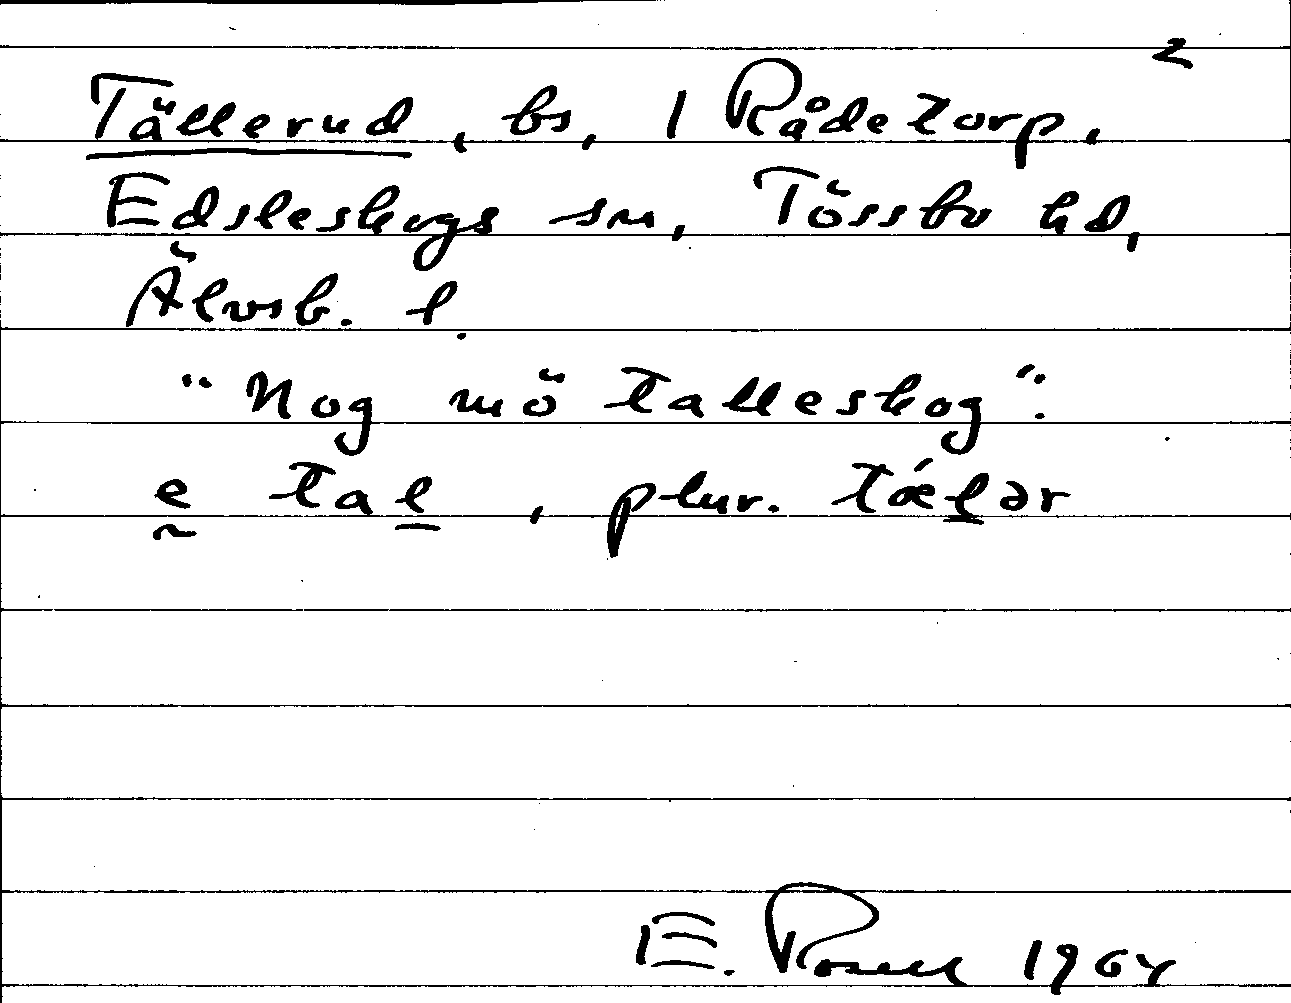 2
Tällerud, bs, 1 Rådetorp,
Edsleskogs sn, Tössbo hd,
Älvsb. l.
"Nog mö talleskog":
e tal, plur. tǽlər
E. Rosell 1964